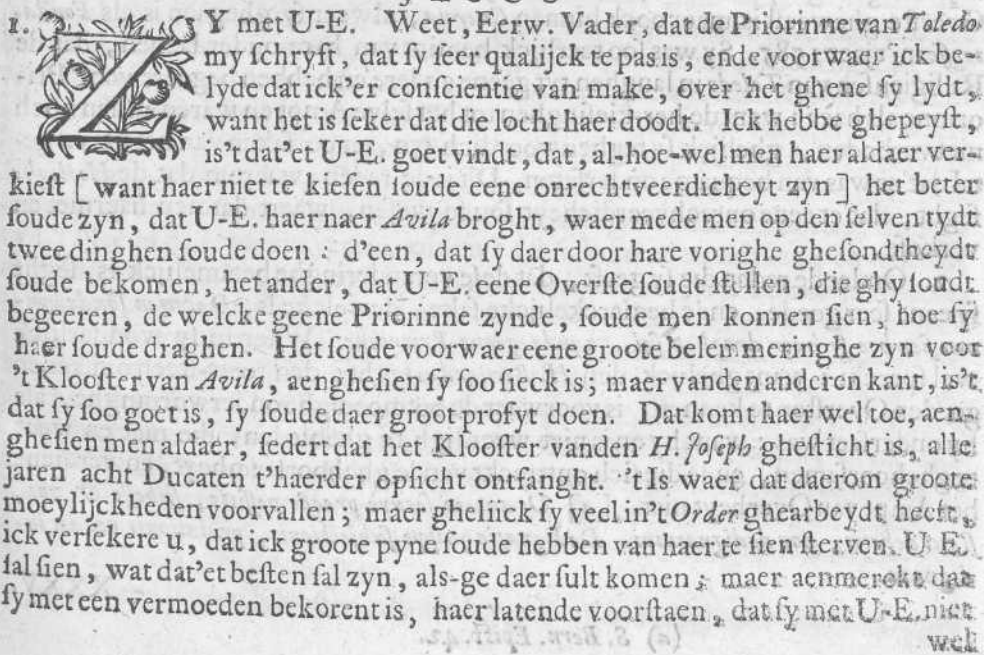 1. ZY met U-E. Weet, Eerw. Vader, dat de Priorinne van Toledo
my ſchryft, dat ſy ſeer qualijck te pas is, ende voorwaer ick be-
lyde dat ick'er conſcientie van make, over het ghene ſy lydt,
want het is ſeker dat die locht haer doodt. Ick hebbe ghepeyſt,
is't dat'et U-E. goet vindt, dat, al-hoe-wel men haer aldaer ver-
kieſt [want haer niet te kieſen ſoude eene onrechtveerdicheyt zyn] het beter
ſoude zyn, dat U-E. haer naer Avila broght, waer mede men op den ſelven tydt
twee dinghen ſoude doen: d'een, dat ſy daer door hare vorighe gheſondtheydt
ſoude bekomen, het ander, dat U-E. eene Overſte ſoude ſtellen, die ghy ſoudt
begeeren, de welcke geene Priorinne zynde, ſoude men konnen ſien, hoe ſy
haer ſoude draghen. Het ſoude voorwaer eene groote belemmeringhe zyn voor
't Klooſter van Avila, aengheſien ſy ſoo ſieck is; maer vanden anderen kant, is't
dat ſy ſoo goet is, ſy ſoude daer groot profyt doen. Dat komt haer wel toe, aen-
gheſien men aldaer, ſedert dat het Klooſter vanden H. Joſeph gheſticht is, alle
jaren acht Ducaten t'haerder opſicht ontfanght. 't Is waer dat daerom groote
moeylijckheden voorvallen; maer gheliick ſy veel in't Order ghearbeydt heeft,
ick verſekere u, dat ick groote pyne ſoude hebben van haer te ſien ſterven. U E.
ſal ſien, wat dat'et beſten ſal zyn, als-ge daer ſult komen; maer aenmerckt dat
ſy met een vermoeden bekorent is, haer latende voorſtaen, dat ſy met U-E. niet
wel
(a) S. Bern. Epiſt. 42.